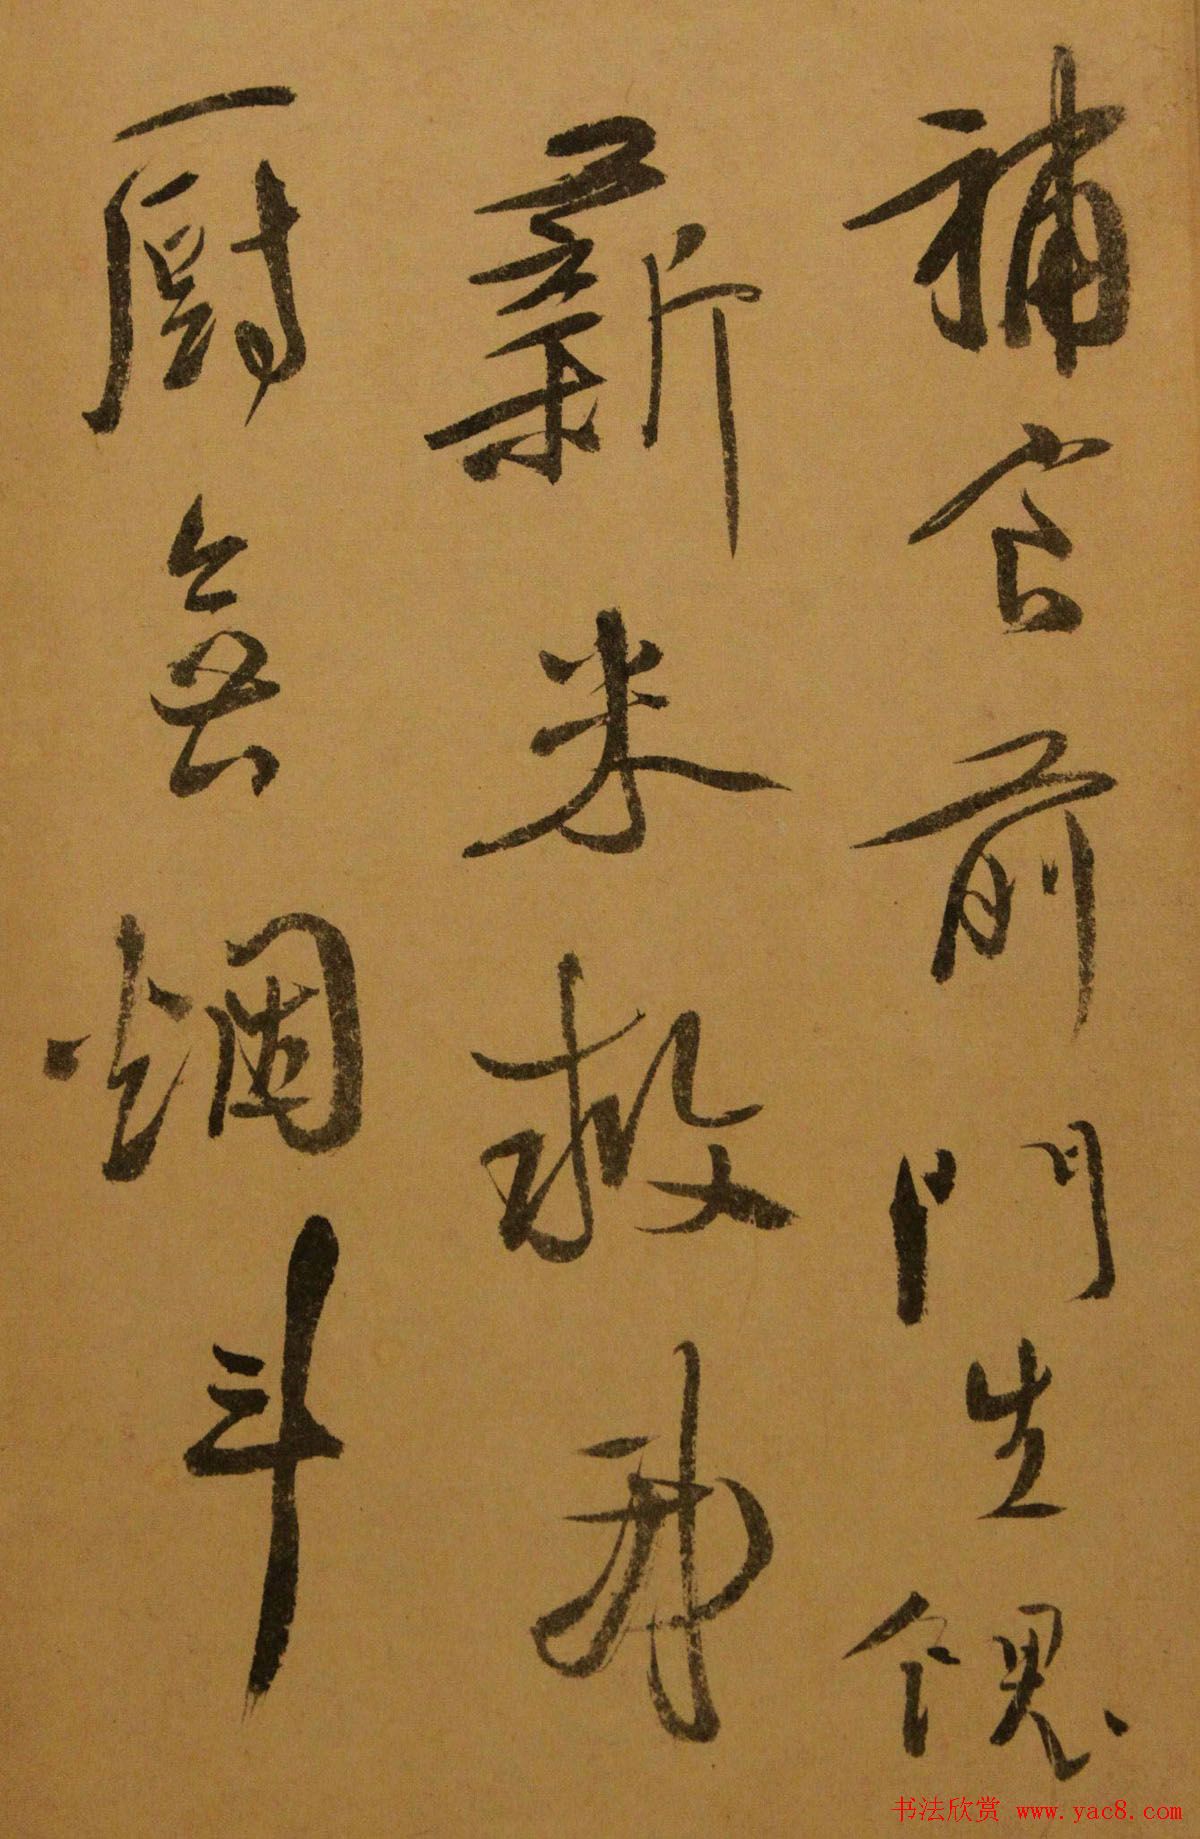 補食前門生餽
薪米救我
廚無烟斗
书法欣赏 www.yac8.com